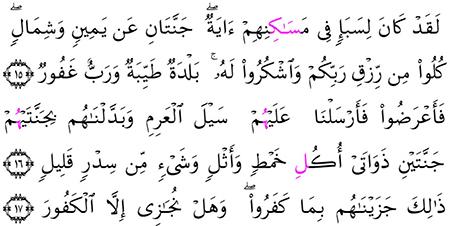 لَقَدْ كَانَ لِسَبَإٍ فِى مَسَٰكِنِهِمْ ءَايَةٌ ۖ جَنَّتَانِ عَن يَمِينٍ وَشِمَالٍ ۖ
كُلُوا۟ مِن رِّزْقِ رَبِّكُمْ وَٱشْكُرُوا۟ لَهُۥ ۚ بَلْدَةٌ طَيِّبَةٌ وَرَبٌّ غَفُورٌ ١٥
فَأَعْرَضُوا۟ فَأَرْسَلْنَا عَلَيْهُمْ سَيْلَ ٱلْعَرِمِ وَبَدَّلْنَٰهُم بِجَنَّتَيْهُمْ
جَنَّتَيْنِ ذَوَاتَىْ أُكُلِ خَمْطٍ وَأَثْلٍ وَشَىْءٍ مِّن سِدْرٍ قَلِيلٍ ١٦
ذَٰلِكَ جَزَيْنَٰهُم بِمَا كَفَرُوا۟ ۖ وَهَلْ نُجَٰزِى إِلَّا ٱلْكَفُورَ ١٧